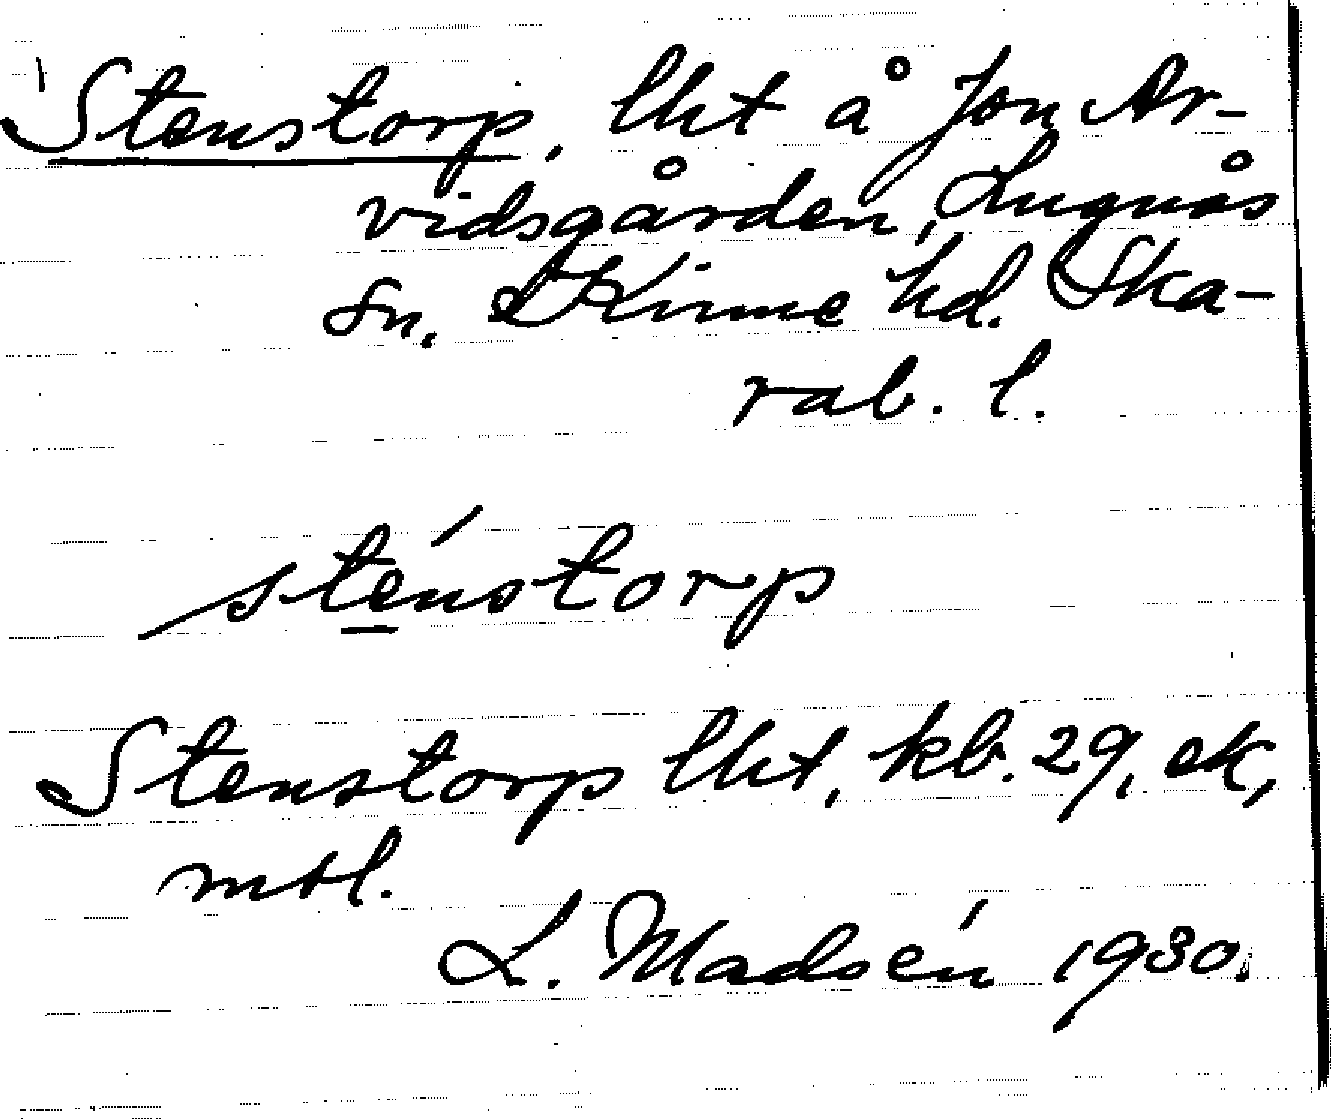 Stenstorp, lht å Jon Ar-
vidsgården, Lugnås
sn, Kinne hd. Ska-
rab. l.
sténstorp
Stenstorp lht, kb. 29, ek,
mtl.
L. Madsén 1930.